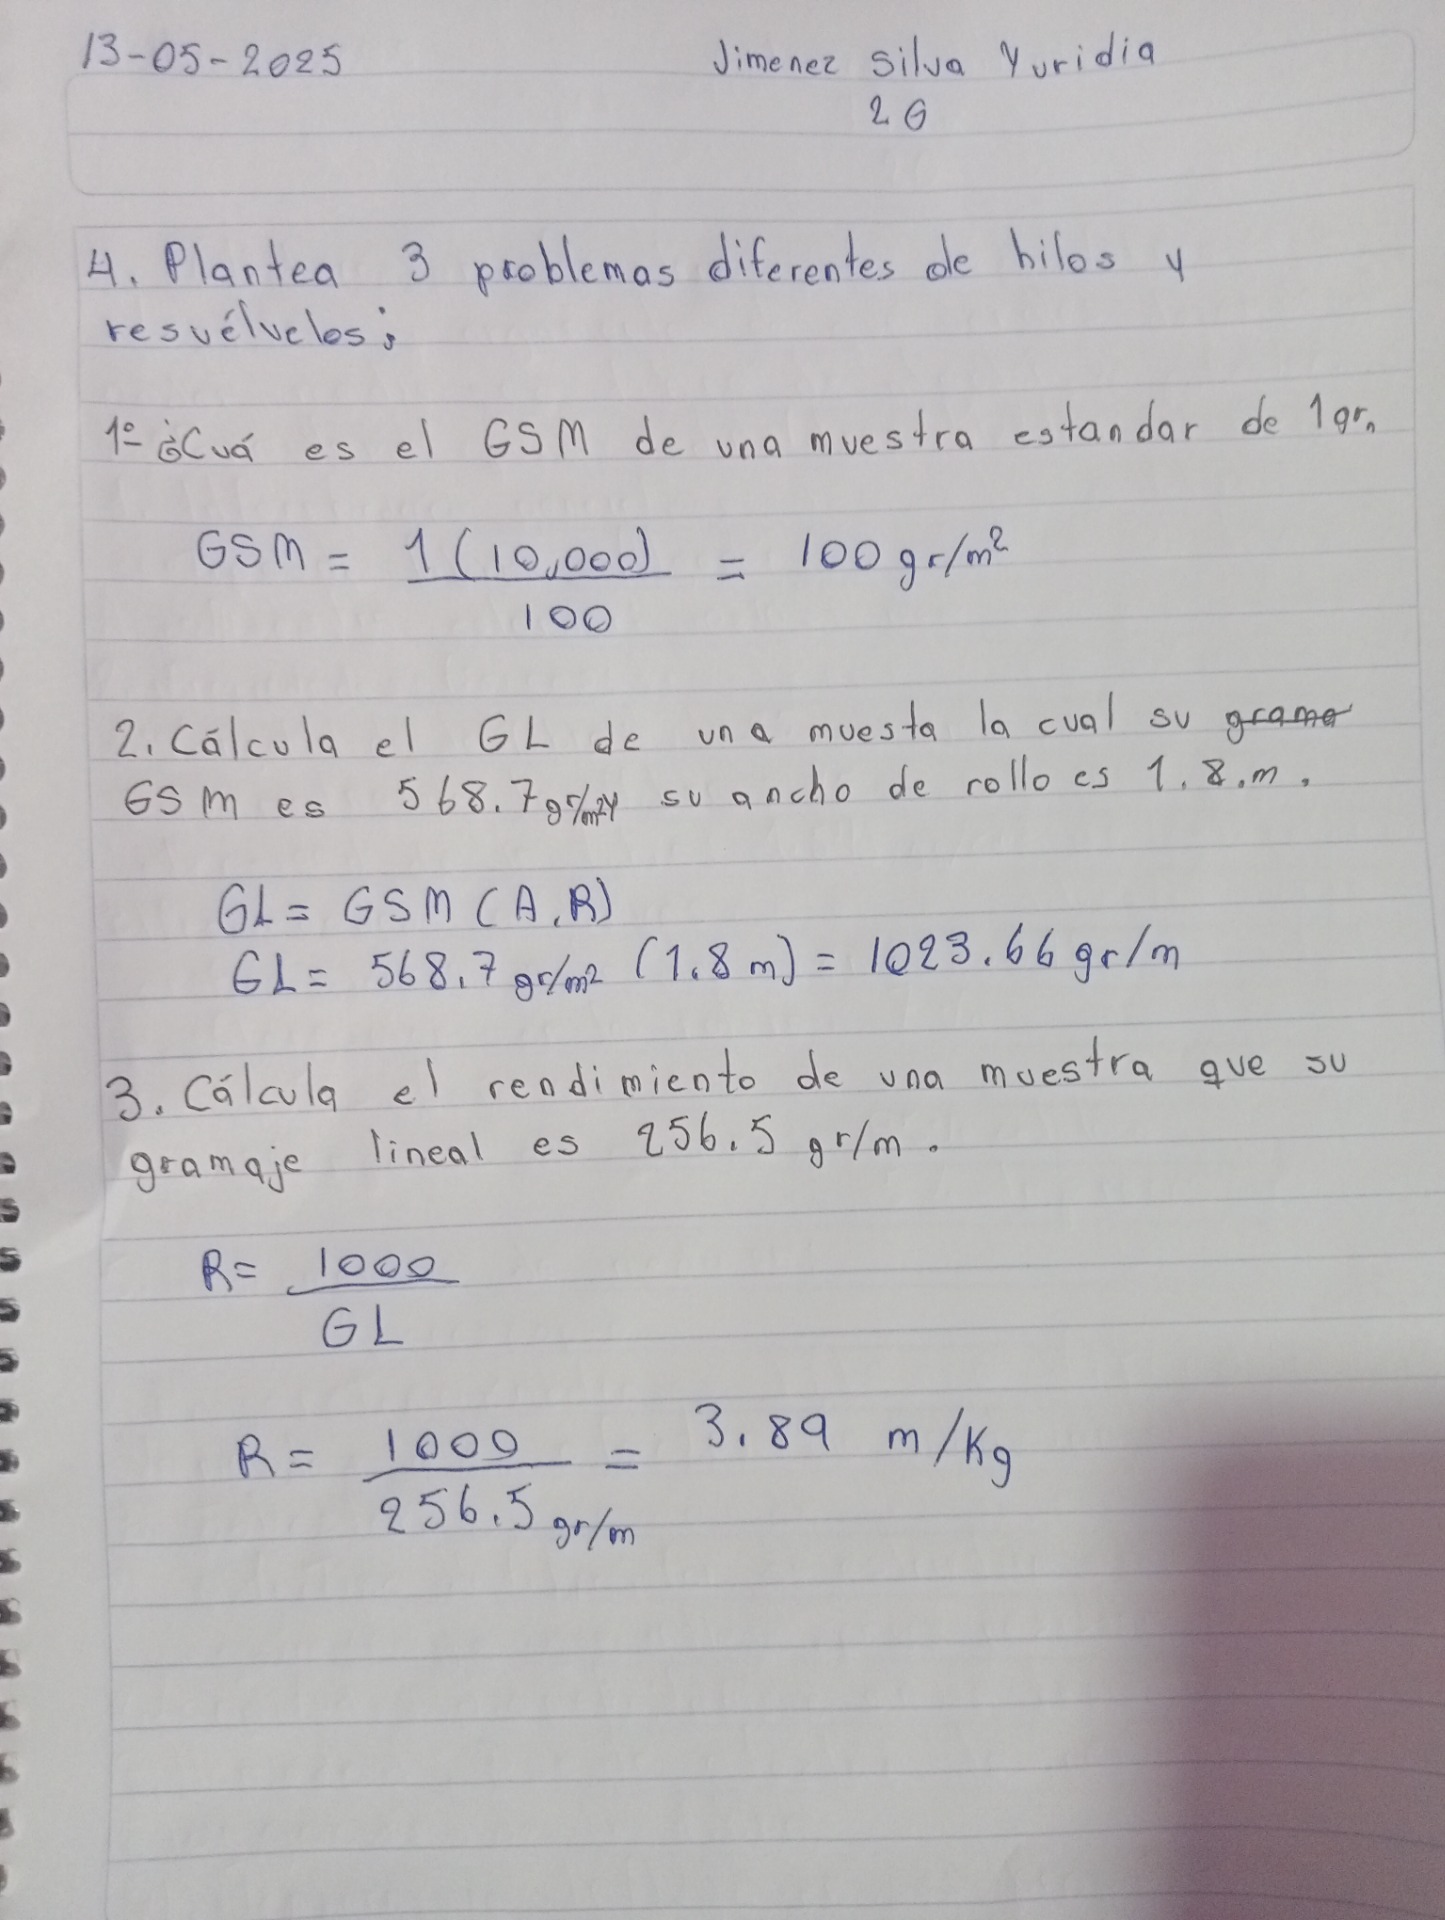 13-05-2025
Jimenez Silva Yuridia
2G
4. Plantea 3 problemas diferentes de hilos y
resuélvelos:
1º ¿Cuá es el GSM de una muestra estandar de 1gr.
GSM = 1(10,000) / 100 = 100 gr/m²
2. Cálcula el GL de una muesta la cual su grama
GSM es 568.7 gr/m² y su ancho de rollo es 1.8.m.
GL = GSM (A.R)
GL = 568.7 gr/m² (1.8 m) = 1023.66 gr/m
3. Cálcula el rendimiento de una muestra que su
gramaje lineal es 256.5 gr/m.
R = 1000 / GL
R = 1000 / 256.5 gr/m = 3.89 m/Kg